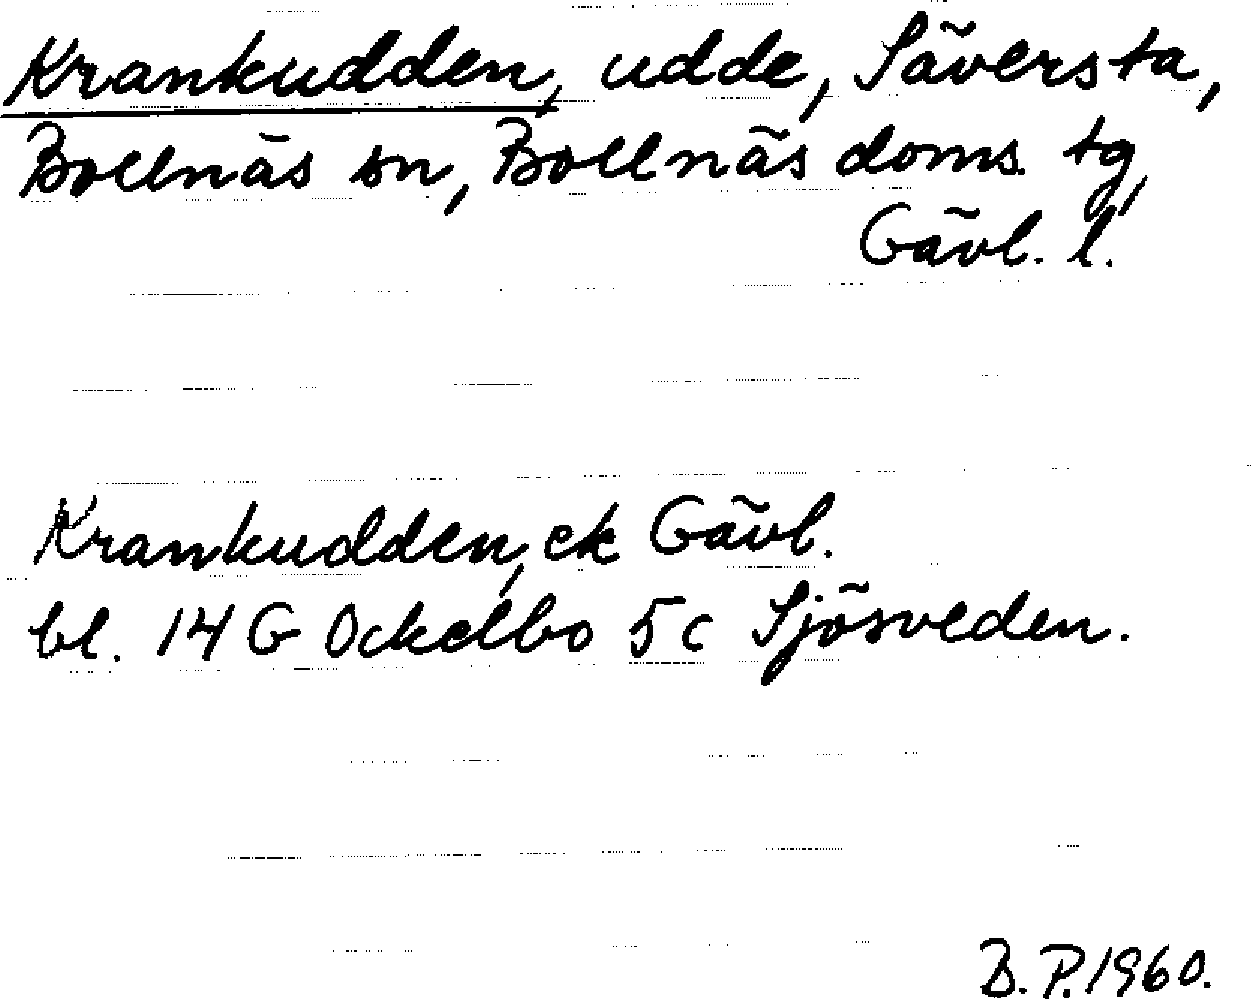 Krankudden, udde, Säversta,
Bollnäs sn, Bollnäs doms. tg,
Gävl. l.
Krankudden, ek Gävl.
bl. 14 G Ockelbo 5c Sjösveden.
B. P. 1960.